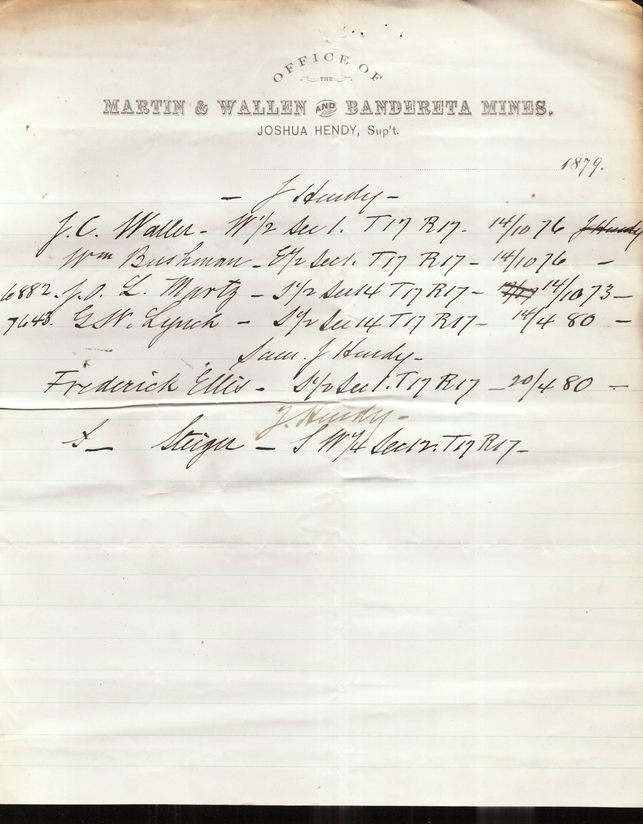 OFFICE OF
THE
MARTIN & WALLEN AND BANDERETA MINES.
JOSHUA HENDY, Sup't.
1879.
— J Hendy —
J. C. Waller - W 1/2 Sec 1. T17 R17 - 14/10 76 J Hendy
Wm Bushman - E 1/2 Sec 1. T17 R17 - 14/10 76 —
6882. J. O. L. Martz - S 1/2 Sec 14 T17 R17 - 14/10 73 —
7643. G. W. Lynch - S 1/2 Sec 14 T17 R17 - 14/4 80 —
Sam. J Hendy -
Frederick Ellis - S 1/2 Sec 1. T17 R17 - 20/4 80 —
J. Hendy -
Steiger - S W 1/4 Sec 12. T17 R17 -